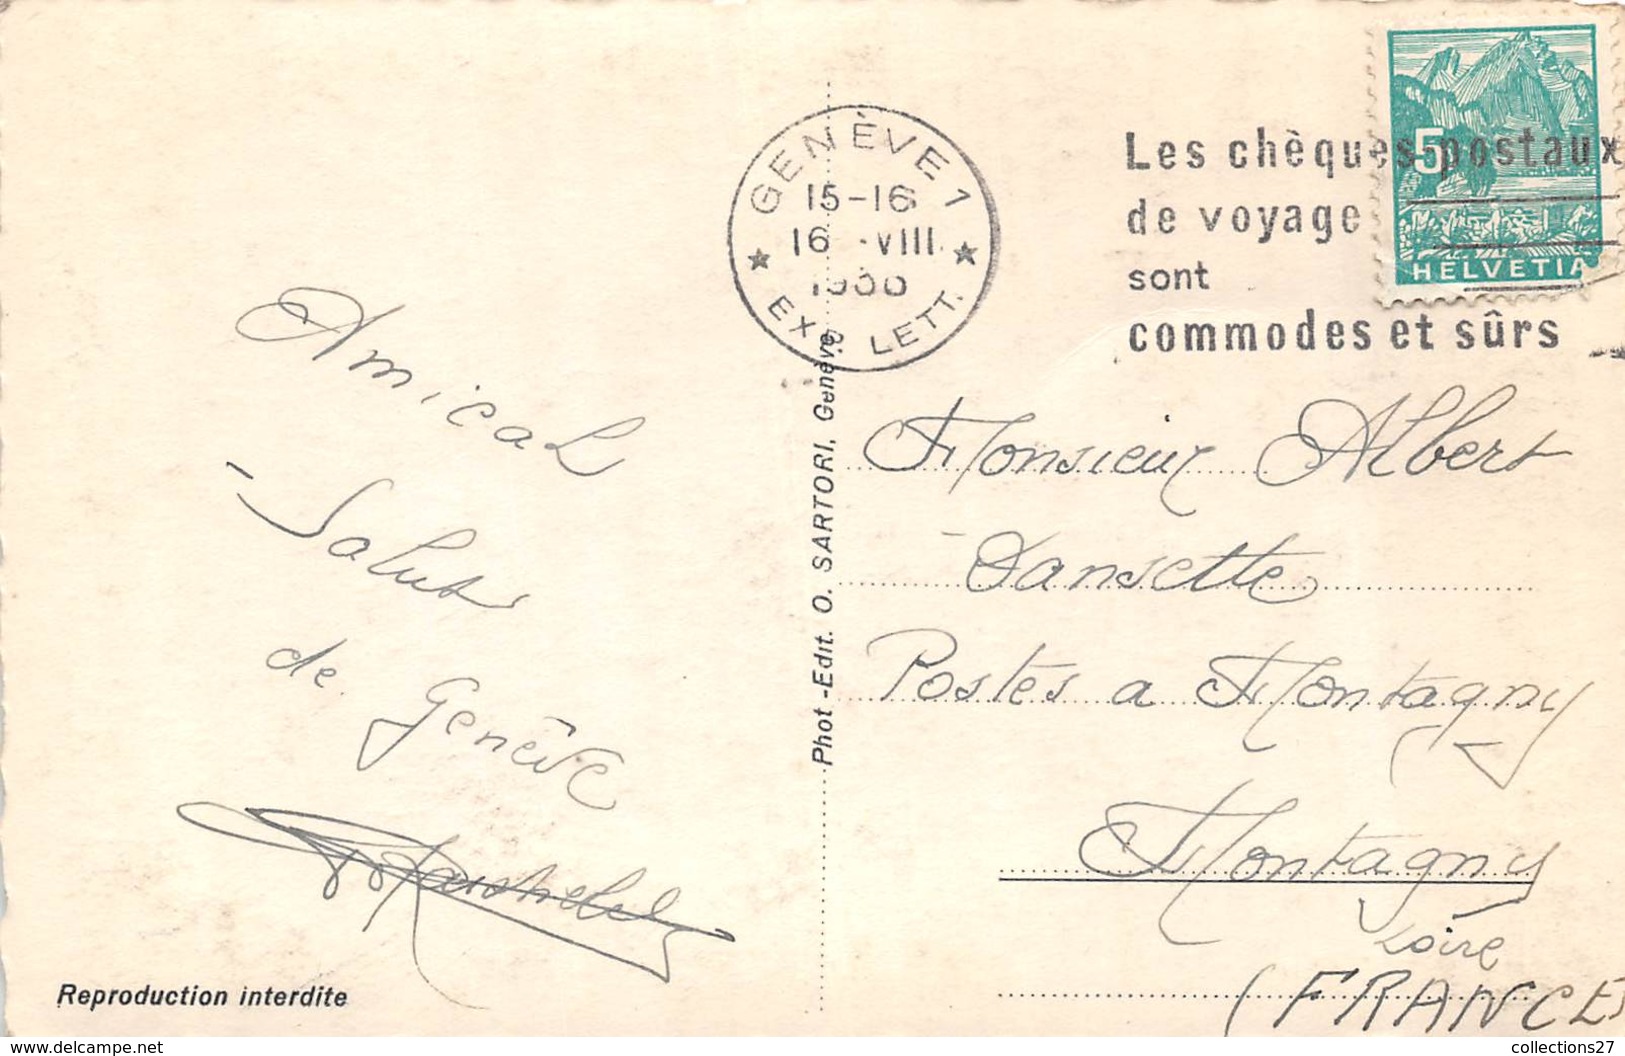 GENÈVE 1
15-16
16 VIII
EXP. LETT.
Les chèques postaux
de voyage
sont
commodes et sûrs
5
HELVETIA
Amical
Salut
de Genève
Reproduction interdite
Phot-Edit. O. SARTORI, Genève
Monsieur Albert
Dansette
Postes a Montagny
Montagny
Loire
(FRANCE)
collections27